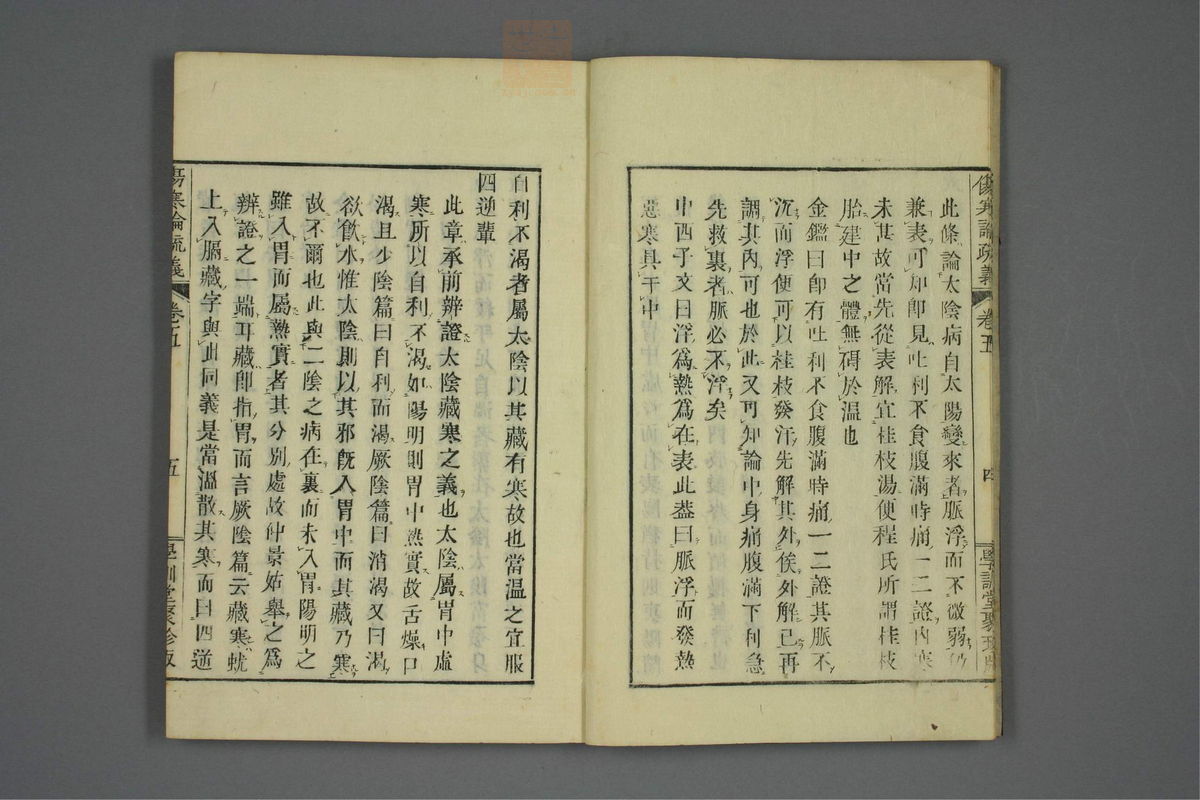 傷寒論疏義 卷五 四 學訓堂聚珍版
此條論太陰病自太陽變來者脈浮而不微弱
兼表可知卽見吐利不食腹滿時痛一二證內寒
未甚故當先從表解宜桂枝湯便程氏所謂桂枝
胎建中之體無碍於溫也
金鑑曰卽有吐利不食腹滿時痛一二證其脈不
沉而浮便可以桂枝發汗先解其外俟外解已再
調其內可也於此又可知論中身痛腹滿下利急
先救裏者脈必不浮矣
中西子文曰浮爲熱爲在表此蓋曰脈浮而發熱
惡寒具于中
自利不渴者屬太陰以其藏有寒故也當溫之宜服
四逆輩
此章承前辨證太陰藏寒之義也太陰屬胃中虛
寒所以自利不渴如陽明則胃中熱實故舌燥口
渴且少陰篇曰自利而渴厥陰篇曰消渴又曰渴
欲飲水惟太陰則以其邪旣入胃中而其藏乃寒
故不爾也此與二陰之病在裏而未入胃陽明之
雖入胃而屬熱實者其分別處故仲景姑舉之爲
辨證之一端耳藏卽指胃而言厥陰篇云藏寒蚘
上入膈藏字與此同義是當溫散其寒而曰四逆
傷寒論疏義 卷五 五 學訓堂聚珍版